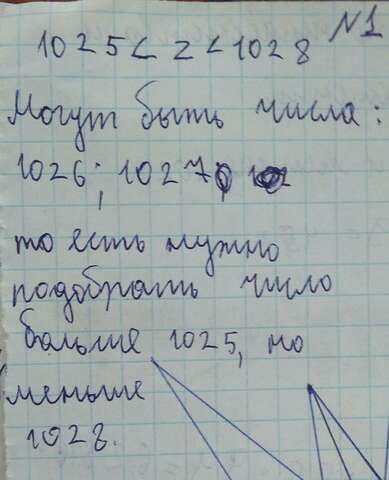 N1
1025 < z < 1028
Могут быть числа:
1026; 1027
то есть нужно
подобрать число
больше 1025, но
меньше
1028.